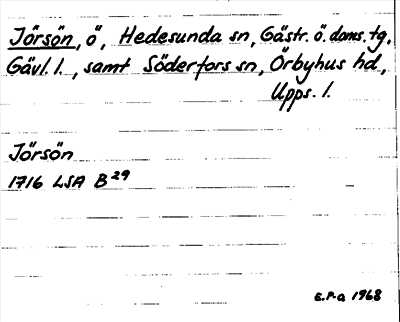 Jörsön, ö, Hedesunda sn, Gästr. ö. doms. tg,
Gävl. l., samt Söderfors sn, Örbyhus hd,
Upps. l.
Jörsön
1716 LSA B29
E.P-a 1968